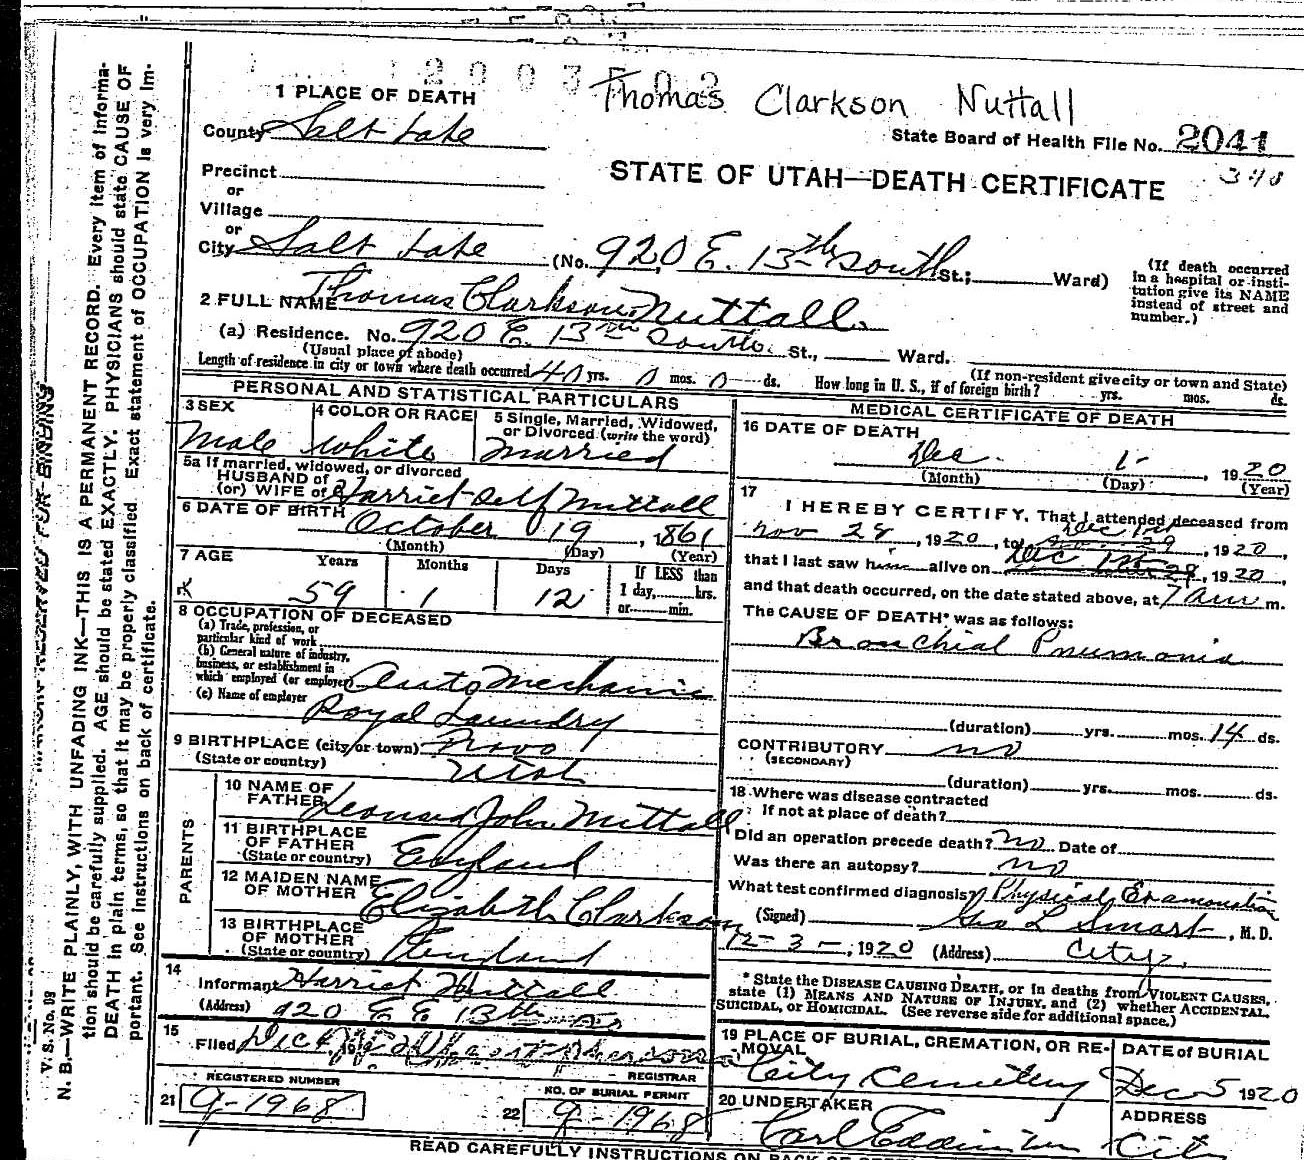 Thomas Clarkson Nuttall
1 PLACE OF DEATH
County Salt Lake
State Board of Health File No. 2041
Precinct
or
Village
or
STATE OF UTAH—DEATH CERTIFICATE
City Salt Lake (No. 920 E. 13th South St.; Ward)
(If death occurred
in a hospital or insti-
tution give its NAME
instead of street and
number.)
2 FULL NAME Thomas Clarkson Nuttall
(a) Residence. No. 920 E. 13th South St., Ward.
(Usual place of abode)
(If non-resident give city or town and State)
Length of residence in city or town where death occurred 40 yrs. 0 mos. 0 ds. How long in U. S., if of foreign birth? yrs. mos. ds.
PERSONAL AND STATISTICAL PARTICULARS
3 SEX 4 COLOR OR RACE 5 Single, Married, Widowed,
or Divorced (write the word)
Male White Married
5a If married, widowed, or divorced
HUSBAND of
(or) WIFE of Harriet Nuttall
6 DATE OF BIRTH October 19, 1861
(Month) (Day) (Year)
7 AGE Years Months Days If LESS than
1 day, hrs.
or min.
59 1 12
8 OCCUPATION OF DECEASED
(a) Trade, profession, or
particular kind of work
(b) General nature of industry,
business, or establishment in
which employed (or employer) Auto Mechanic
(c) Name of employer Royal Laundry
9 BIRTHPLACE (city or town) Provo
(State or country) Utah
PARENTS
10 NAME OF
FATHER Leonard John Nuttall
11 BIRTHPLACE
OF FATHER
(State or country) England
12 MAIDEN NAME
OF MOTHER Elizabeth Clarkson
13 BIRTHPLACE
OF MOTHER
(State or country) England
14
Informant Harriet Nuttall
(Address) 920 E 13th So
15
Filed Dec
REGISTRAR
REGISTERED NUMBER
21 9-1968
NO. OF BURIAL PERMIT
22 9-1968
MEDICAL CERTIFICATE OF DEATH
16 DATE OF DEATH
Dec. 1-, 1920
(Month) (Day) (Year)
17
I HEREBY CERTIFY, That I attended deceased from
Nov 28, 1920, to Dec 1st, 1920,
that I last saw him alive on Dec 1st, 1920,
and that death occurred, on the date stated above, at 7 am m.
The CAUSE OF DEATH* was as follows:
Bronchial Pneumonia
(duration) yrs. mos. 14 ds.
CONTRIBUTORY no
(SECONDARY)
(duration) yrs. mos. ds.
18 Where was disease contracted
if not at place of death?
Did an operation precede death? no Date of
Was there an autopsy? no
What test confirmed diagnosis? Physical Examination
(Signed) Geo L Smart, M. D.
12-3-, 1920 (Address) City.
* State the DISEASE CAUSING DEATH, or in deaths from VIOLENT CAUSES,
state (1) MEANS AND NATURE OF INJURY, and (2) whether ACCIDENTAL,
SUICIDAL, or HOMICIDAL. (See reverse side for additional space.)
19 PLACE OF BURIAL, CREMATION, OR RE-
MOVAL
DATE of BURIAL
City Cemetery Dec 5 1920
20 UNDERTAKER ADDRESS
Carl City
READ CAREFULLY INSTRUCTIONS ON BACK OF
V. S. No. 09
MARGIN RESERVED FOR BINDING
N. B.—WRITE PLAINLY, WITH UNFADING INK—THIS IS A PERMANENT RECORD. Every item of informa-
tion should be carefully supplied. AGE should be stated EXACTLY. PHYSICIANS should state CAUSE OF
DEATH in plain terms, so that it may be properly classified. Exact statement of OCCUPATION is very im-
portant. See instructions on back of certificate.